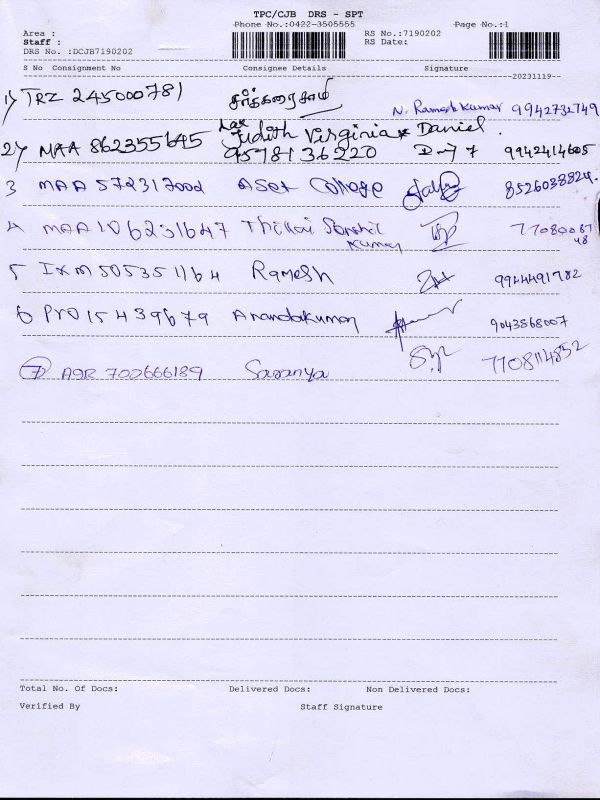 TPC/CJB DRS - SPT
Phone No.:0422-3505555 Page No.:1
Area : RS No.:7190202
Staff : RS Date:
DRS No. :DCJB7190202
S No Consignment No Consignee Details Signature
20231119
1) TRZ 245000781 சர்க்கரைசாமி N. Ramesh Kumar 9942732749
2) MAA 862355645 Judith Virginia Daniel
95781 36220 9942414605
3 MAA 572317002 Aset College 8526038824.
4 MAA 106231647 Kumar 77080067
48
5 IXM 505351164 Ramesh 9944491782
6 PYO 15439679 Anandakumar 9043868007
7 AGR 700666189 Saranya 7708114852
Total No. Of Docs: Delivered Docs: Non Delivered Docs:
Verified By Staff Signature